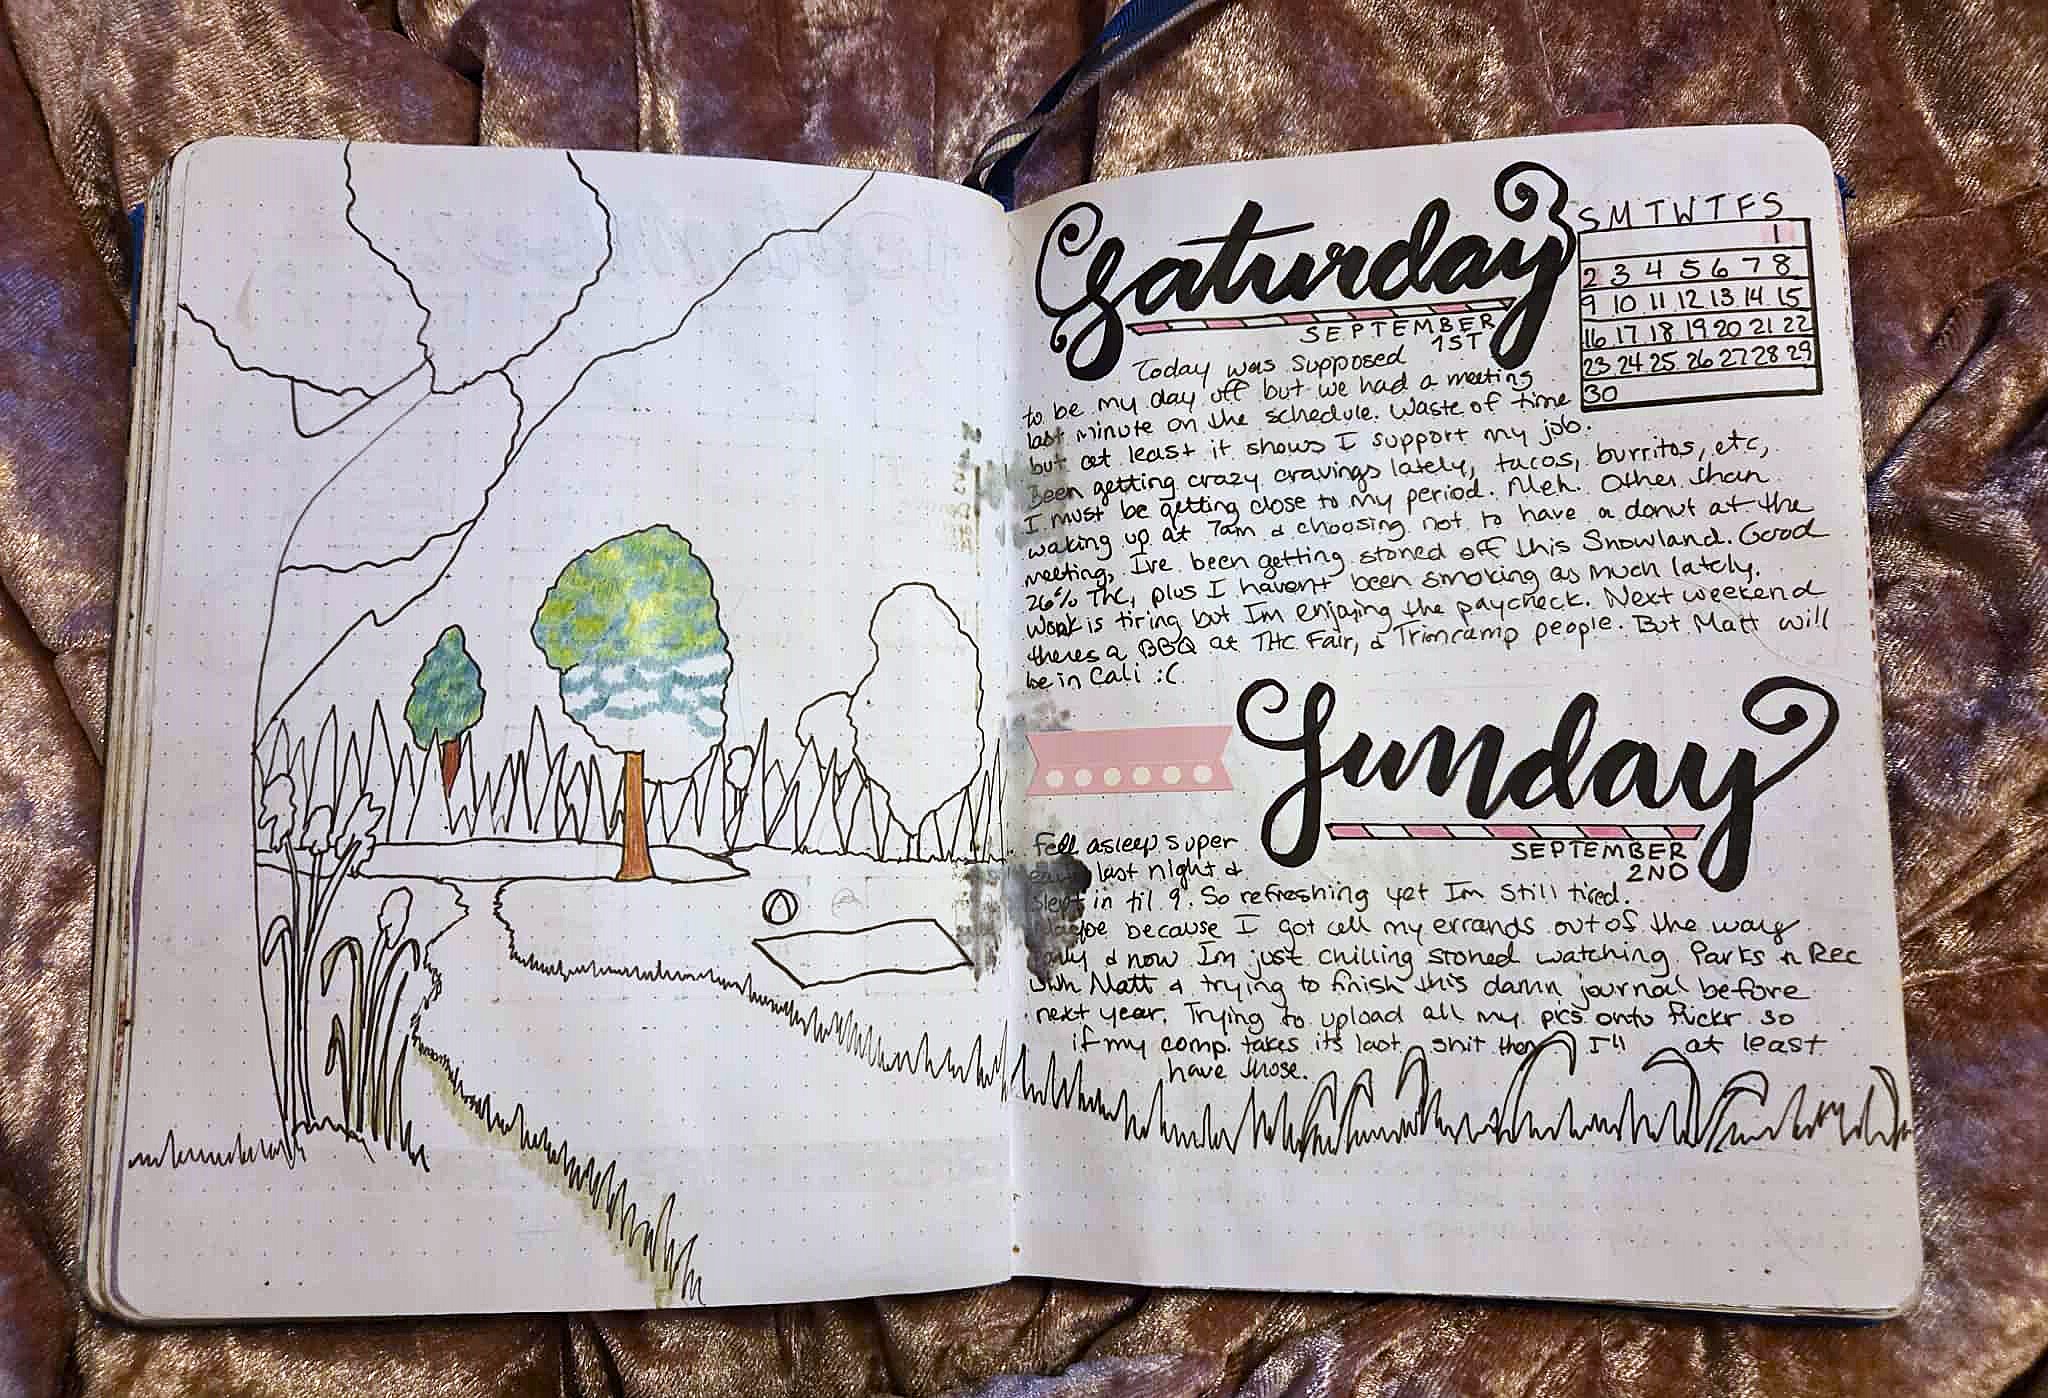 Saturday
SEPTEMBER
1ST
S M T W T F S
1
2 3 4 5 6 7 8
9 10 11 12 13 14 15
16 17 18 19 20 21 22
23 24 25 26 27 28 29
30
Today was supposed
to be my day off but we had a meeting
last minute on the schedule. Waste of time
but at least it shows I support my job.
Been getting crazy cravings lately, tacos, burritos, etc,
I must be getting close to my period. Meh. Other than
waking up at 7am & choosing not to have a donut at the
meeting, Ive been getting stoned off this Snowland. Good
26% THC, plus I havent been smoking as much lately.
Work is tiring but Im enjoying the paycheck. Next weekend
theres a BBQ at THC Fair, & Trimcamp people. But Matt will
be in Cali :(
Sunday
SEPTEMBER
2ND
Fell asleep super
early last night &
slept in til 9. So refreshing yet Im still tired.
Maybe because I got all my errands out of the way
early & now Im just chilling stoned watching Parks n Rec
with Matt & trying to finish this damn journal before
next year. Trying to upload all my pics onto flickr so
if my comp. takes its last shit then I'll at least
have those.